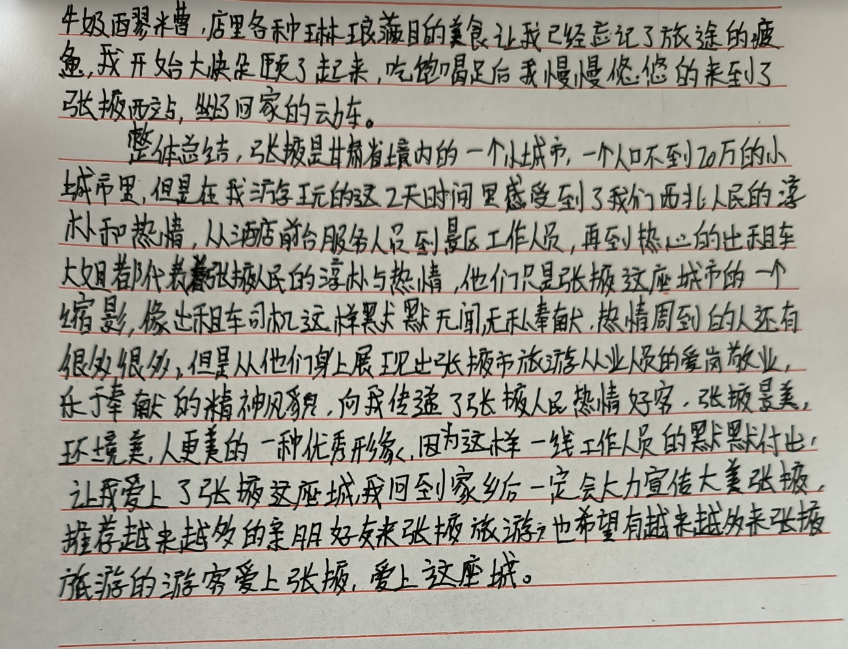 牛奶西翠米糟，店里各种琳琅满目的美食让我已经忘记了旅途的疲
惫，我开始大快朵颐了起来，吃饱喝足后我慢慢悠悠的来到了
张掖西站，坐了回家的动车。
整体总结，张掖是甘肃省境内的一个小城市，一个人口不到20万的小
城市里，但是在我游玩的这2天时间里感受到了我们西北人民的淳
朴和热情，从酒店前台服务人员到景区工作人员，再到热心的出租车
大姐都代表着张掖人民的淳朴与热情，他们只是张掖这座城市的一个
缩影，像出租车司机这样默默无闻，无私奉献，热情周到的人还有
很多很多，但是从他们身上展现出张掖市旅游从业人员的爱岗敬业，
乐于奉献的精神风貌，向我传递了张掖人民热情好客，张掖景美，
环境美，人更美的一种优秀形象，因为这样一线工作人员的默默付出，
让我爱上了张掖这座城，我回到家乡后一定会大力宣传大美张掖，
推荐越来越多的亲朋好友来张掖旅游，也希望有越来越多来张掖
旅游的游客爱上张掖，爱上这座城。